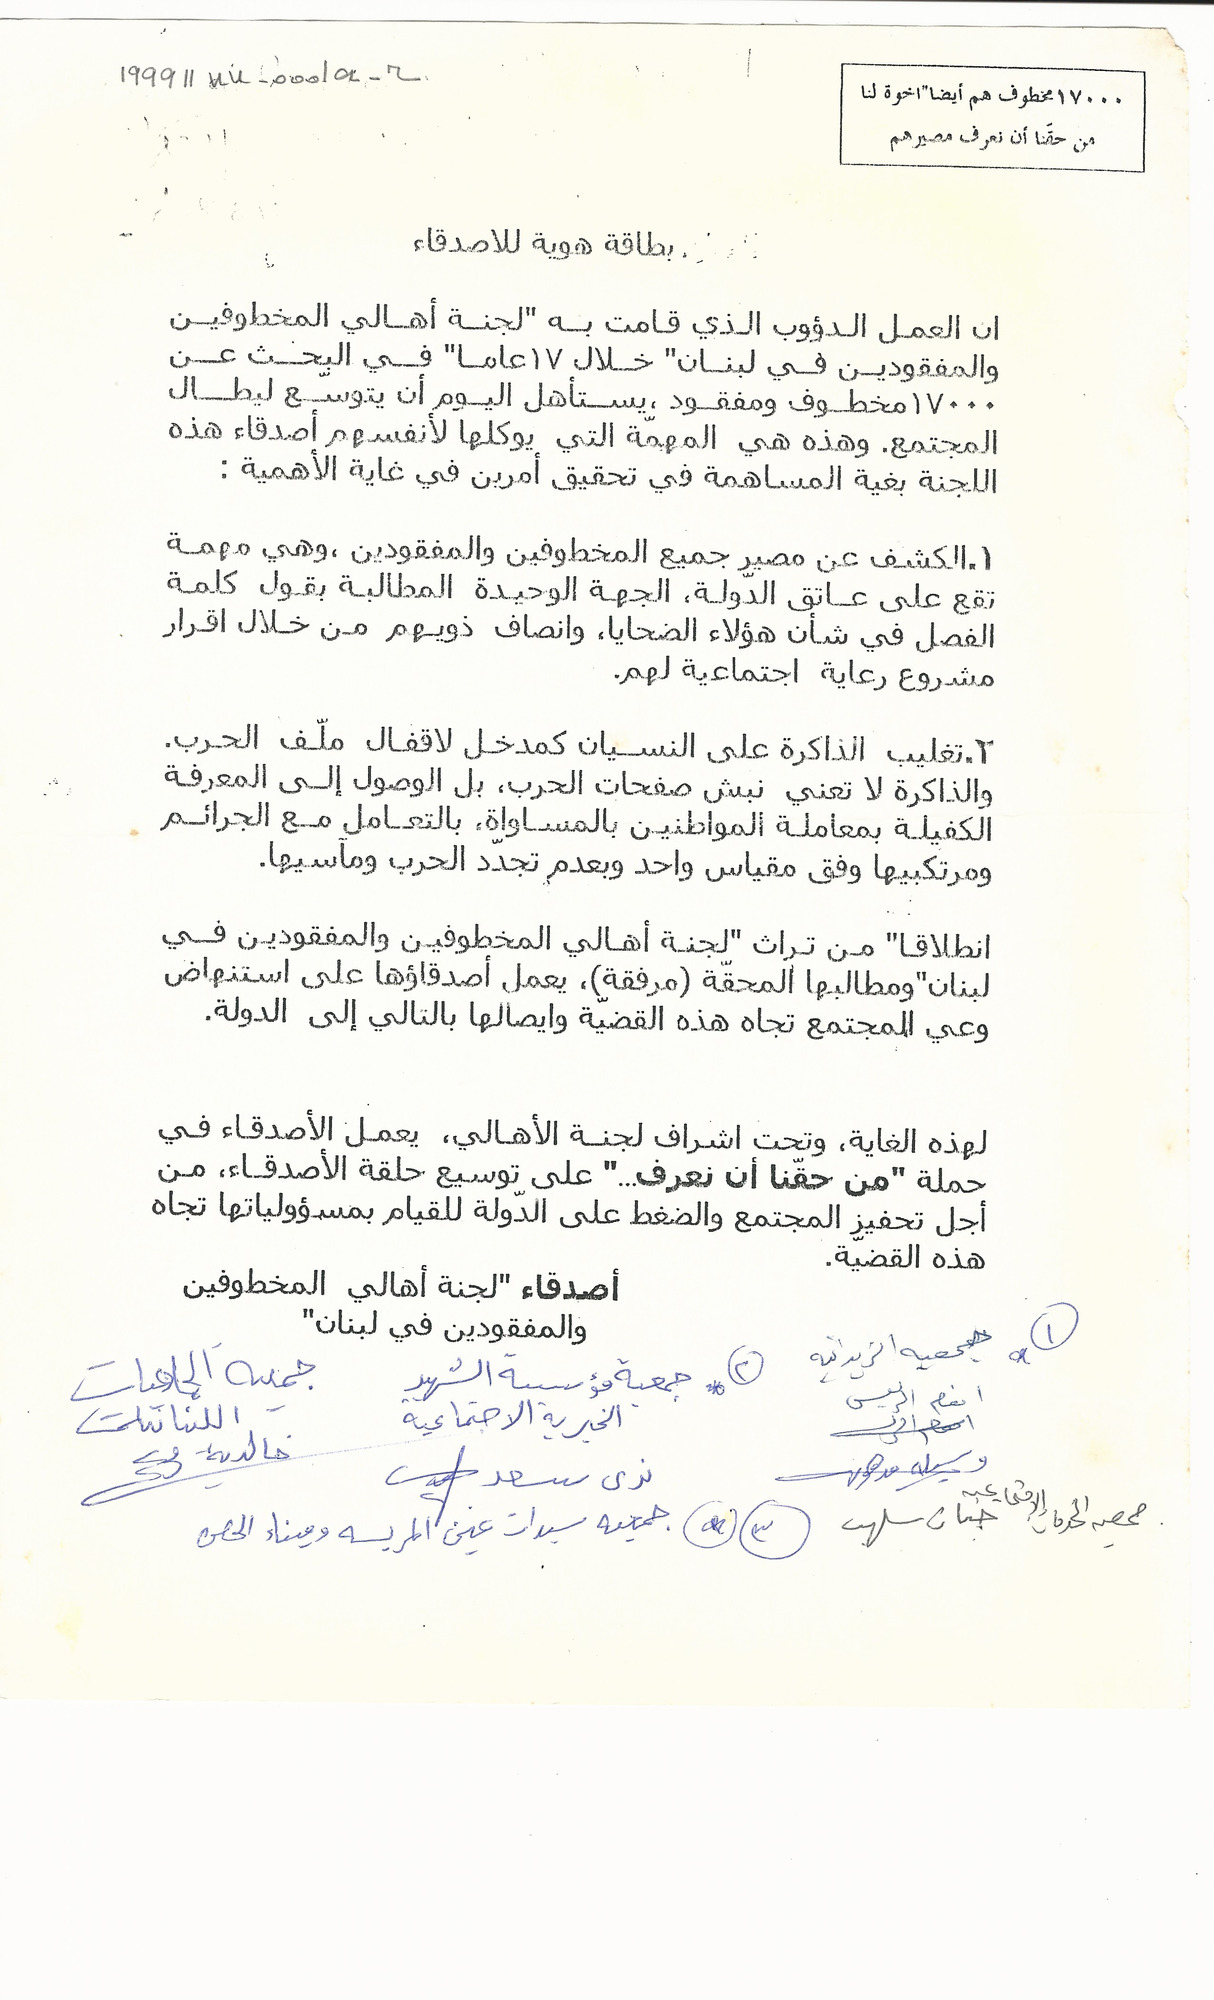 ١٧٠٠٠ مخطوف هم أيضا" اخوة لنا
من حقّنا أن نعرف مصيرهم
بطاقة هوية للاصدقاء
ان العمل الدؤوب الذي قامت به "لجنة أهالي المخطوفين
والمفقودين في لبنان" خلال ١٧عاما" في البحث عن
١٧٠٠٠مخطوف ومفقود ،يستأهل اليوم أن يتوسّع ليطال
المجتمع. وهذه هي المهمّة التي يوكلها لأنفسهم أصدقاء هذه
اللجنة بغية المساهمة في تحقيق أمرين في غاية الأهمية :
١.الكشف عن مصير جميع المخطوفين والمفقودين ،وهي مهمة
تقع على عاتق الدّولة، الجهة الوحيدة المطالبة بقول كلمة
الفصل في شأن هؤلاء الضحايا، وانصاف ذويهم من خلال اقرار
مشروع رعاية اجتماعية لهم.
٢.تغليب الذاكرة على النسيان كمدخل لاقفال ملّف الحرب.
والذاكرة لا تعني نبش صفحات الحرب، بل الوصول إلى المعرفة
الكفيلة بمعاملة المواطنين بالمساواة، بالتعامل مع الجرائم
ومرتكبيها وفق مقياس واحد وبعدم تجدّد الحرب ومآسيها.
انطلاقا" من تراث "لجنة أهالي المخطوفين والمفقودين في
لبنان"ومطالبها المحقّة (مرفقة)، يعمل أصدقاؤها على استنهاض
وعي المجتمع تجاه هذه القضيّة وايصالها بالتالي إلى الدولة.
لهذه الغاية، وتحت اشراف لجنة الأهالي، يعمل الأصدقاء في
حملة "من حقّنا أن نعرف..." على توسيع حلقة الأصدقاء، من
أجل تحفيز المجتمع والضغط على الدّولة للقيام بمسؤولياتها تجاه
هذه القضيّة.
أصدقاء "لجنة أهالي المخطوفين
والمفقودين في لبنان"
١
٢ جمعية مؤسسة الشهيد
الخيرية الاجتماعية
ندى سعد
جمعية
اللبنانيات
٣ جمعية سيدات عين المريسه وميناء الحصن